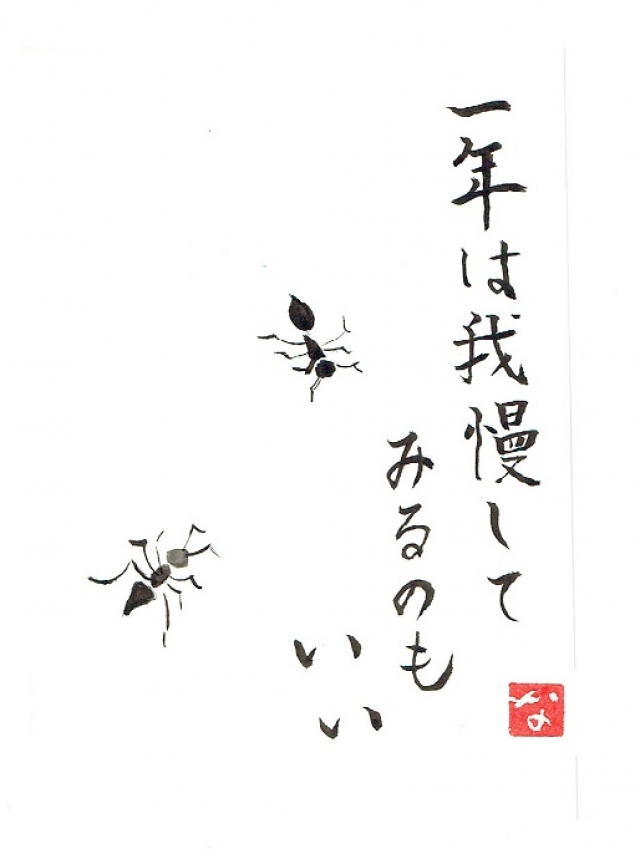 一年は我慢して
みるのも
いい
な